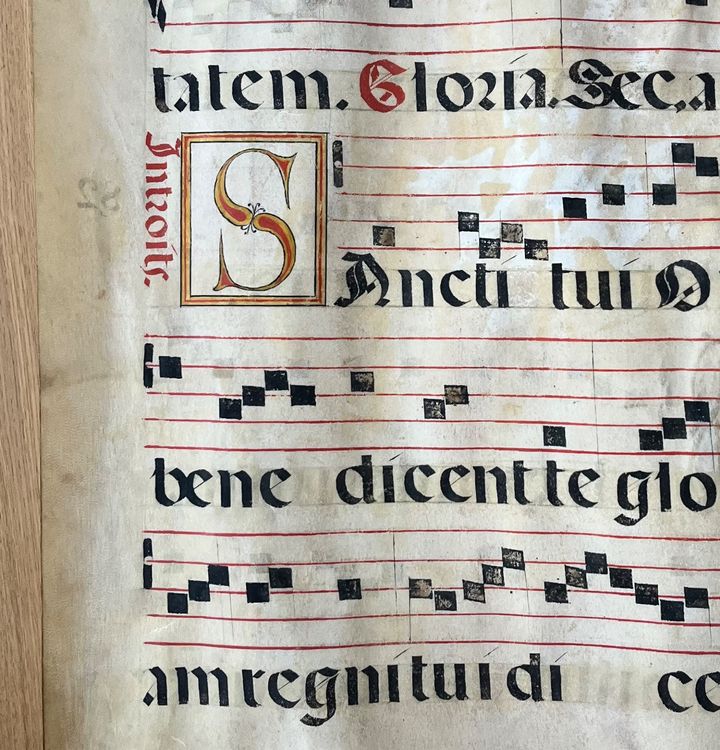 tatem. Gloria. Sec, a
Introitꝰ.
SAncti tui D
bene dicent te glo
am regni tui di ce